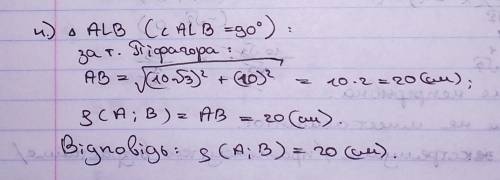 4.) △ ALB (∠ ALB = 90°) :
за т. Піфагора :
AB = √(10·√3)² + (10)² = 10·2 = 20 (см) ;
ρ (A ; B) = AB = 20 (см) .
Відповідь : ρ (A ; B) = 20 (см) .